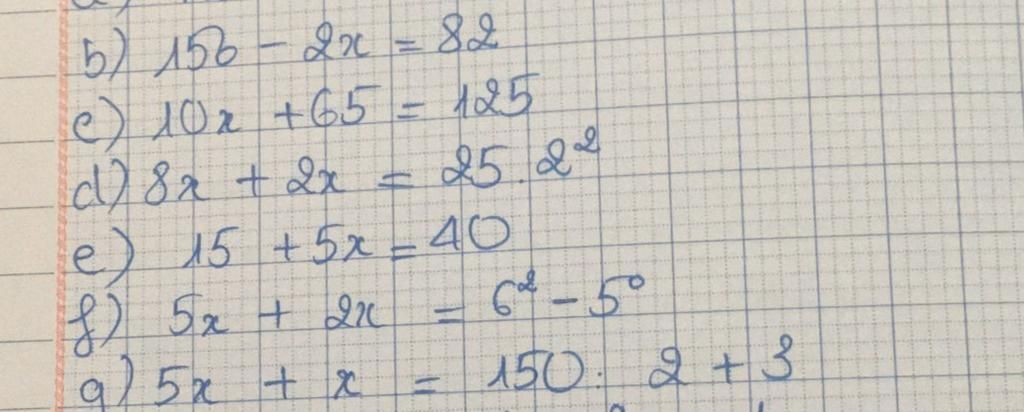 b) 156 - 2x = 82
c) 10x + 65 = 125
d) 8x + 2x = 25 . 2²
e) 15 + 5x = 40
f) 5x + 2x = 6² - 5⁰
g) 5x + x = 150 : 2 + 3